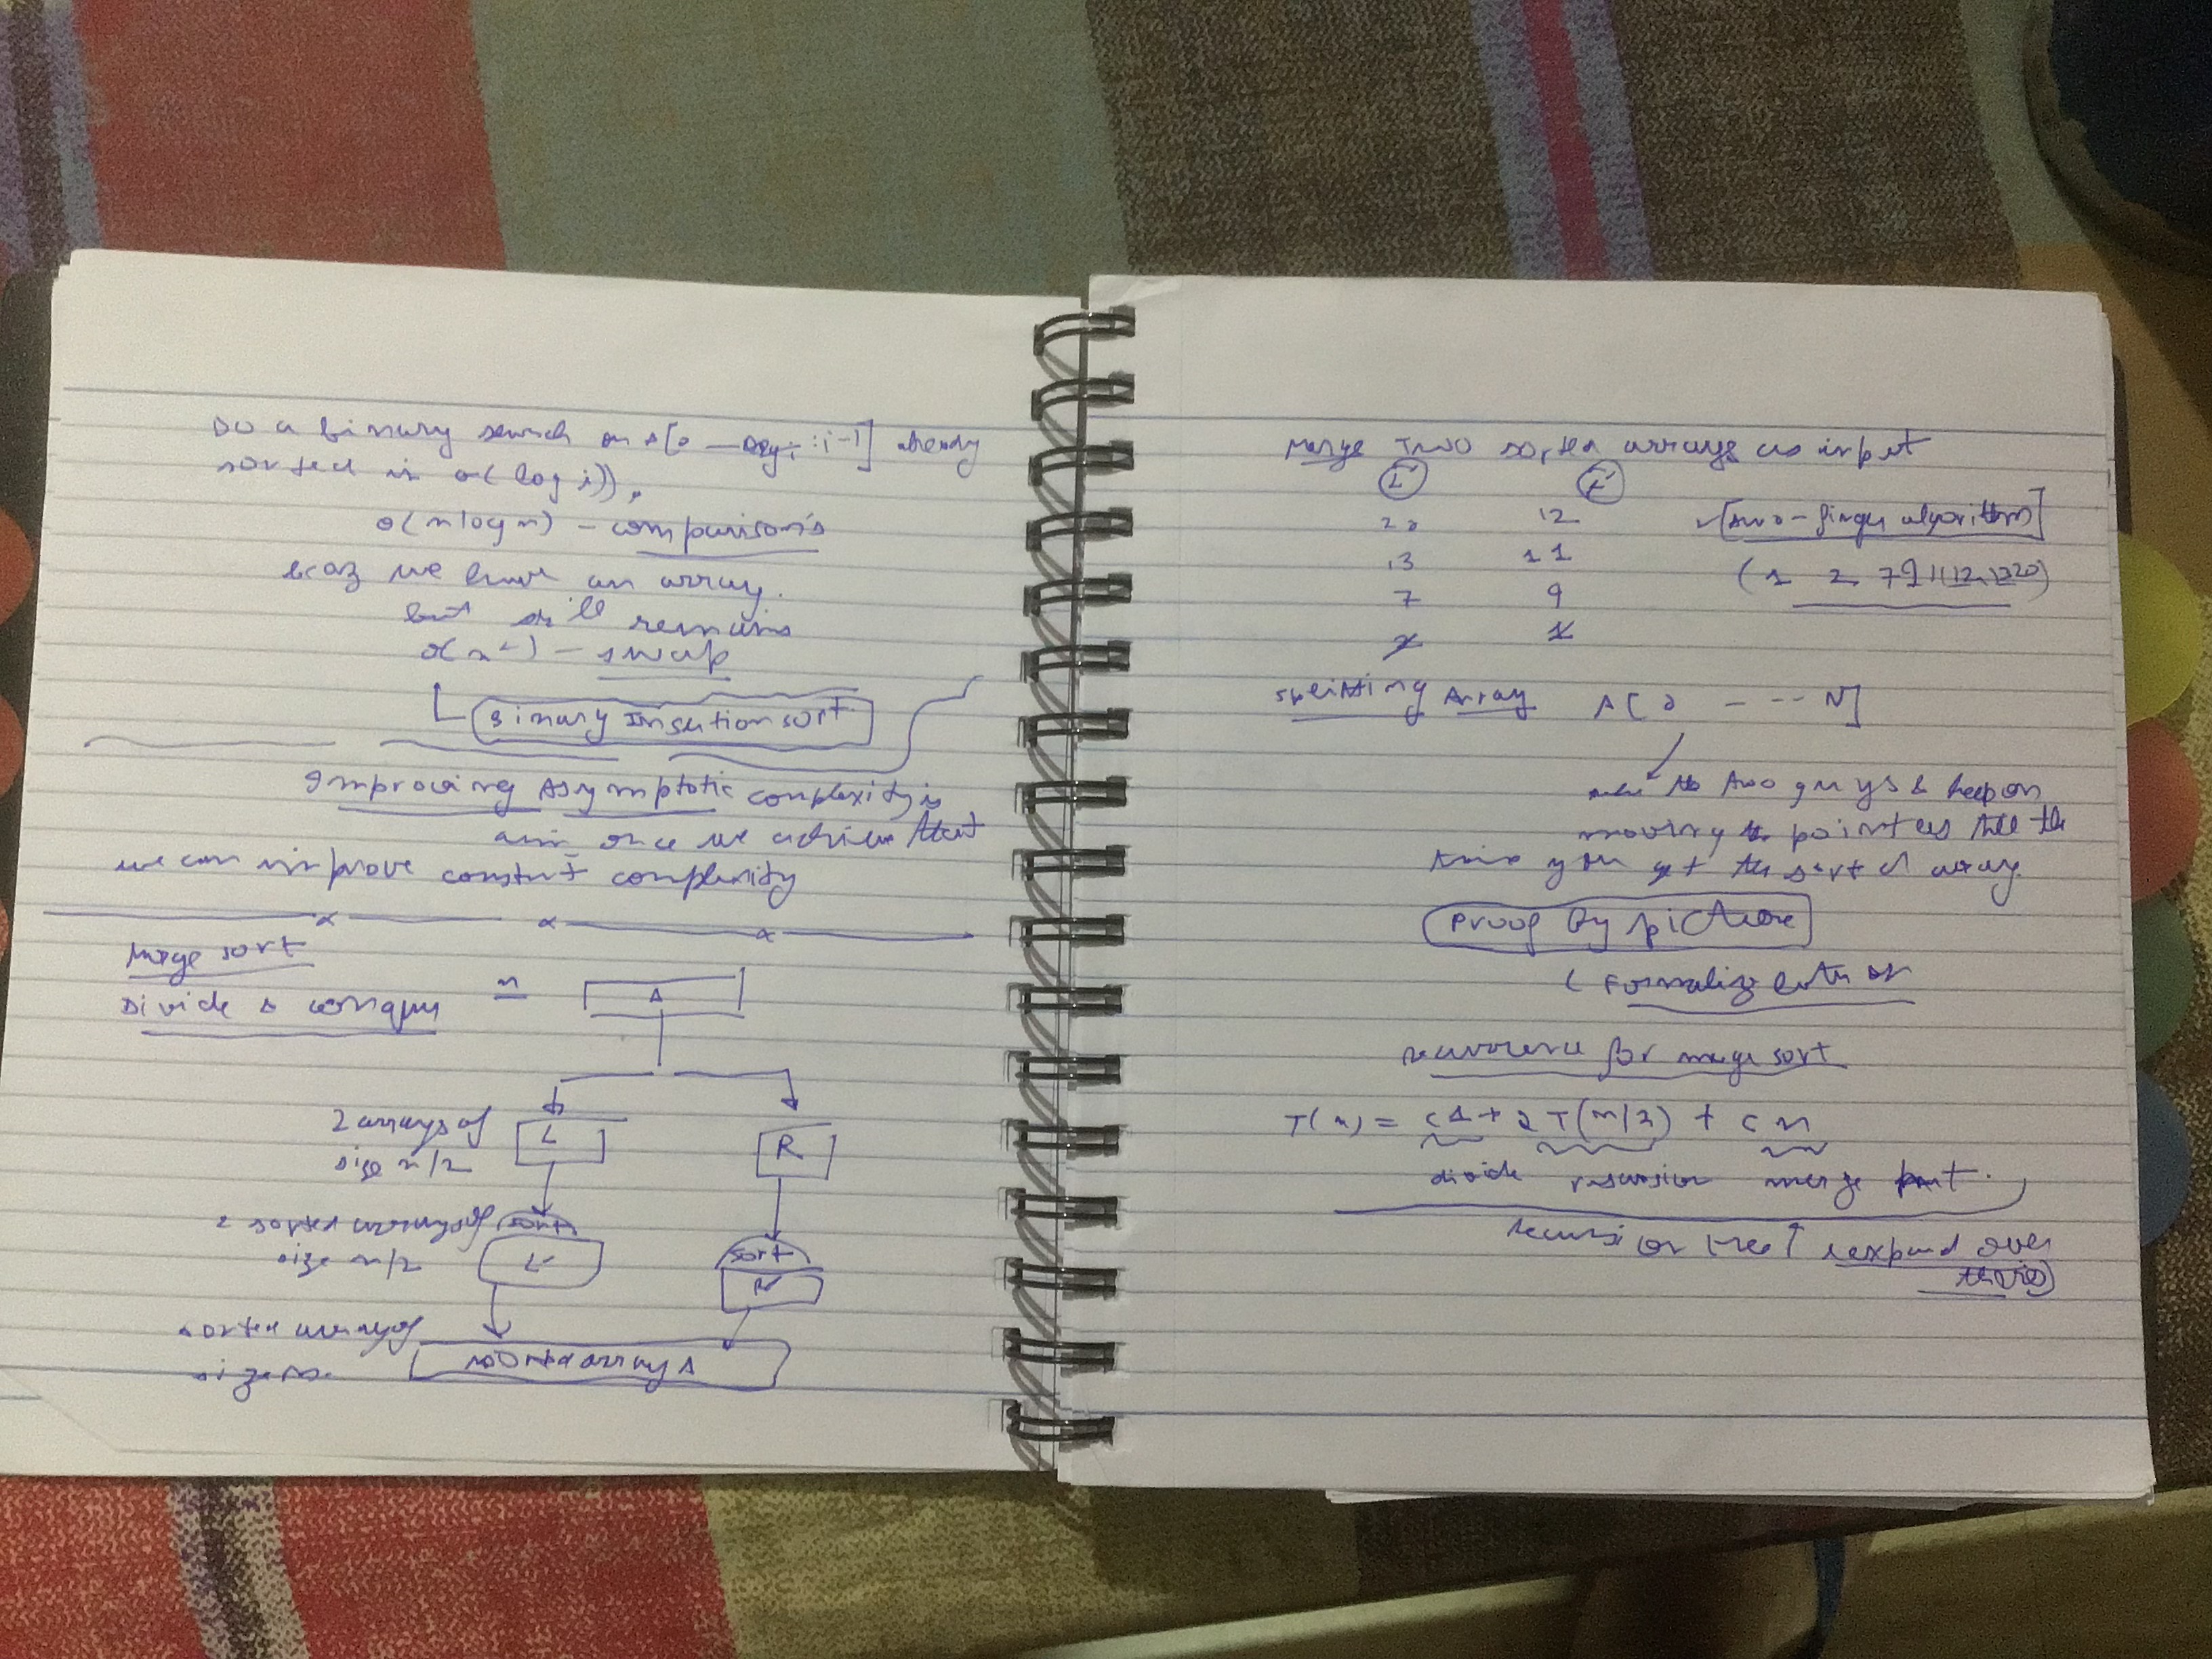 Do a binary search on A[0 — key i :i-1] already
sorted in O(log i)),
O(n log n) - comparisons
bcoz we have an array.
but still remains
O(n²) - swap
Binary Insertion sort
Improving Asymptotic complexity is
aim once we achieve that
we can improve constnt complexity
Merge sort
Divide & conquer
n
A
2 arrays of
size n/2
L
R
2 sorted arrays of
size n/2
sort
L'
sort
R'
sorted array of
size n.
sorted array A
Merge Two sorted arrays as input
L'
20 12
13 11
7 9
2 1
[two-finger algorithm]
(1 2 7 9 11 12 13 20)
splitting Array A[0 - -- N]
two guys & keep on
moving the pointers till the
time you get the sorted array.
Proof By picture
(Formalize
recurrence for merge sort
T(n) = C1 + 2T(n/2) + Cn
divide recursion merge part.
recursion tree (expand over